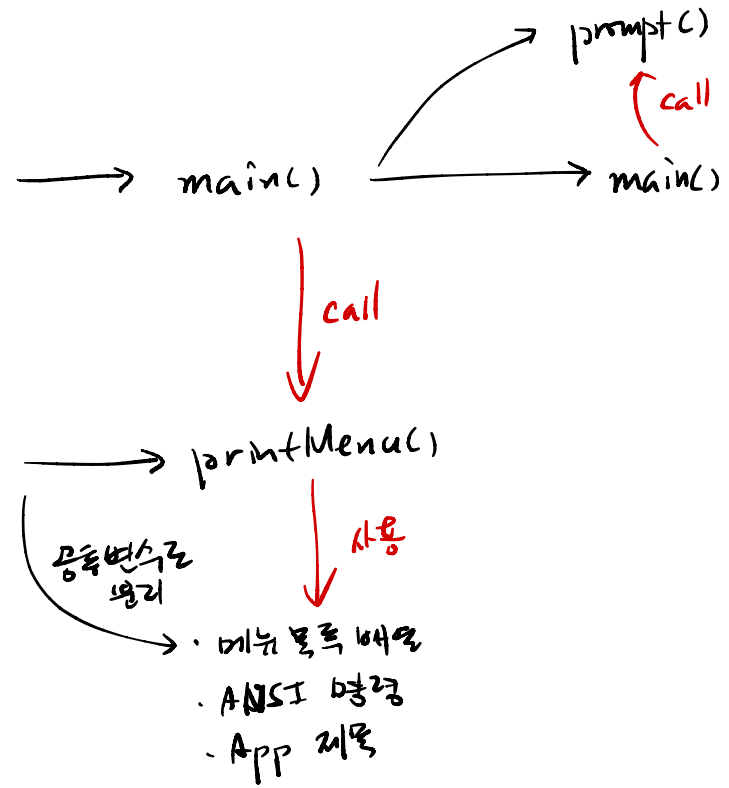 prompt()
call
main()
main()
call
printMenu()
사용
공통변수로
분리
· 메뉴 목록 배열
· ANSI 명령
· App 제목